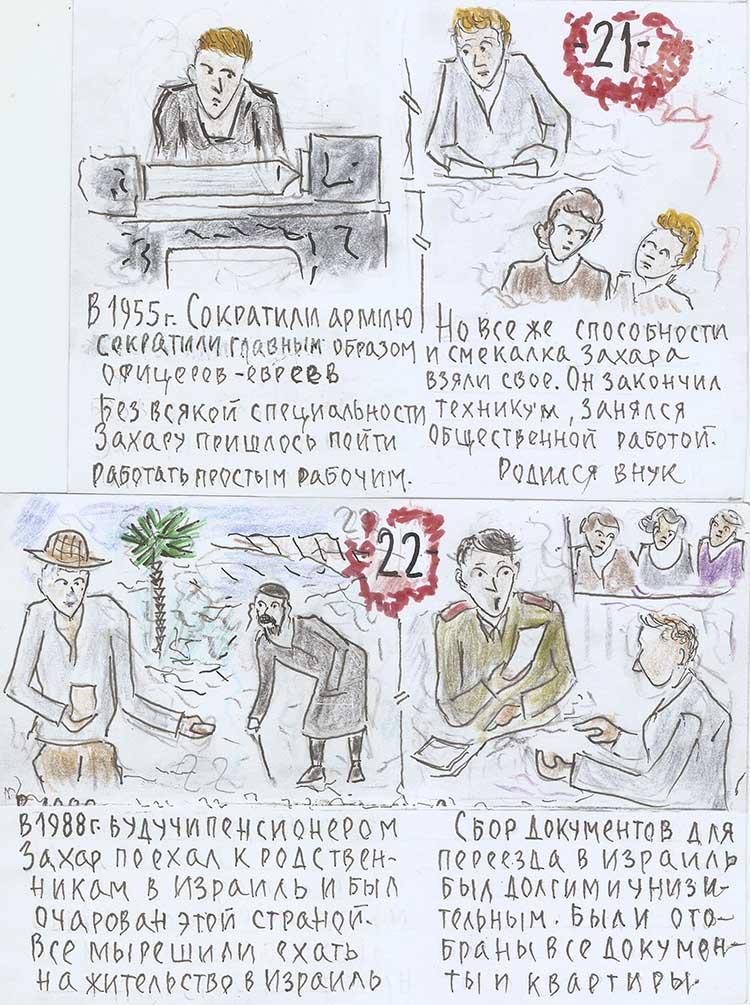 -21-
В 1955г. Сократили армию
сократили главным образом
офицеров-евреев
Без всякой специальности
Захару пришлось пойти
работать простым рабочим.
Но все же способности
и смекалка Захара
взяли свое. Он закончил
техникум, занялся
общественной работой.
Родился внук
-22-
22
В 1988г. будучи пенсионером
Захар поехал к родствен-
никам в Израиль и был
очарован этой страной.
Все мы решили ехать
на жительство в Израиль
Сбор документов для
переезда в Израиль
был долгим и унизи-
тельным. Были ото-
браны все докумен-
ты и квартиры.